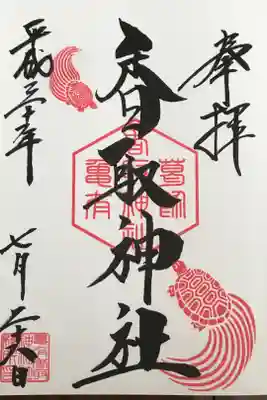 奉拝
香取神社
葛飾
香取神社
亀有
平成三十年
七月二十八日